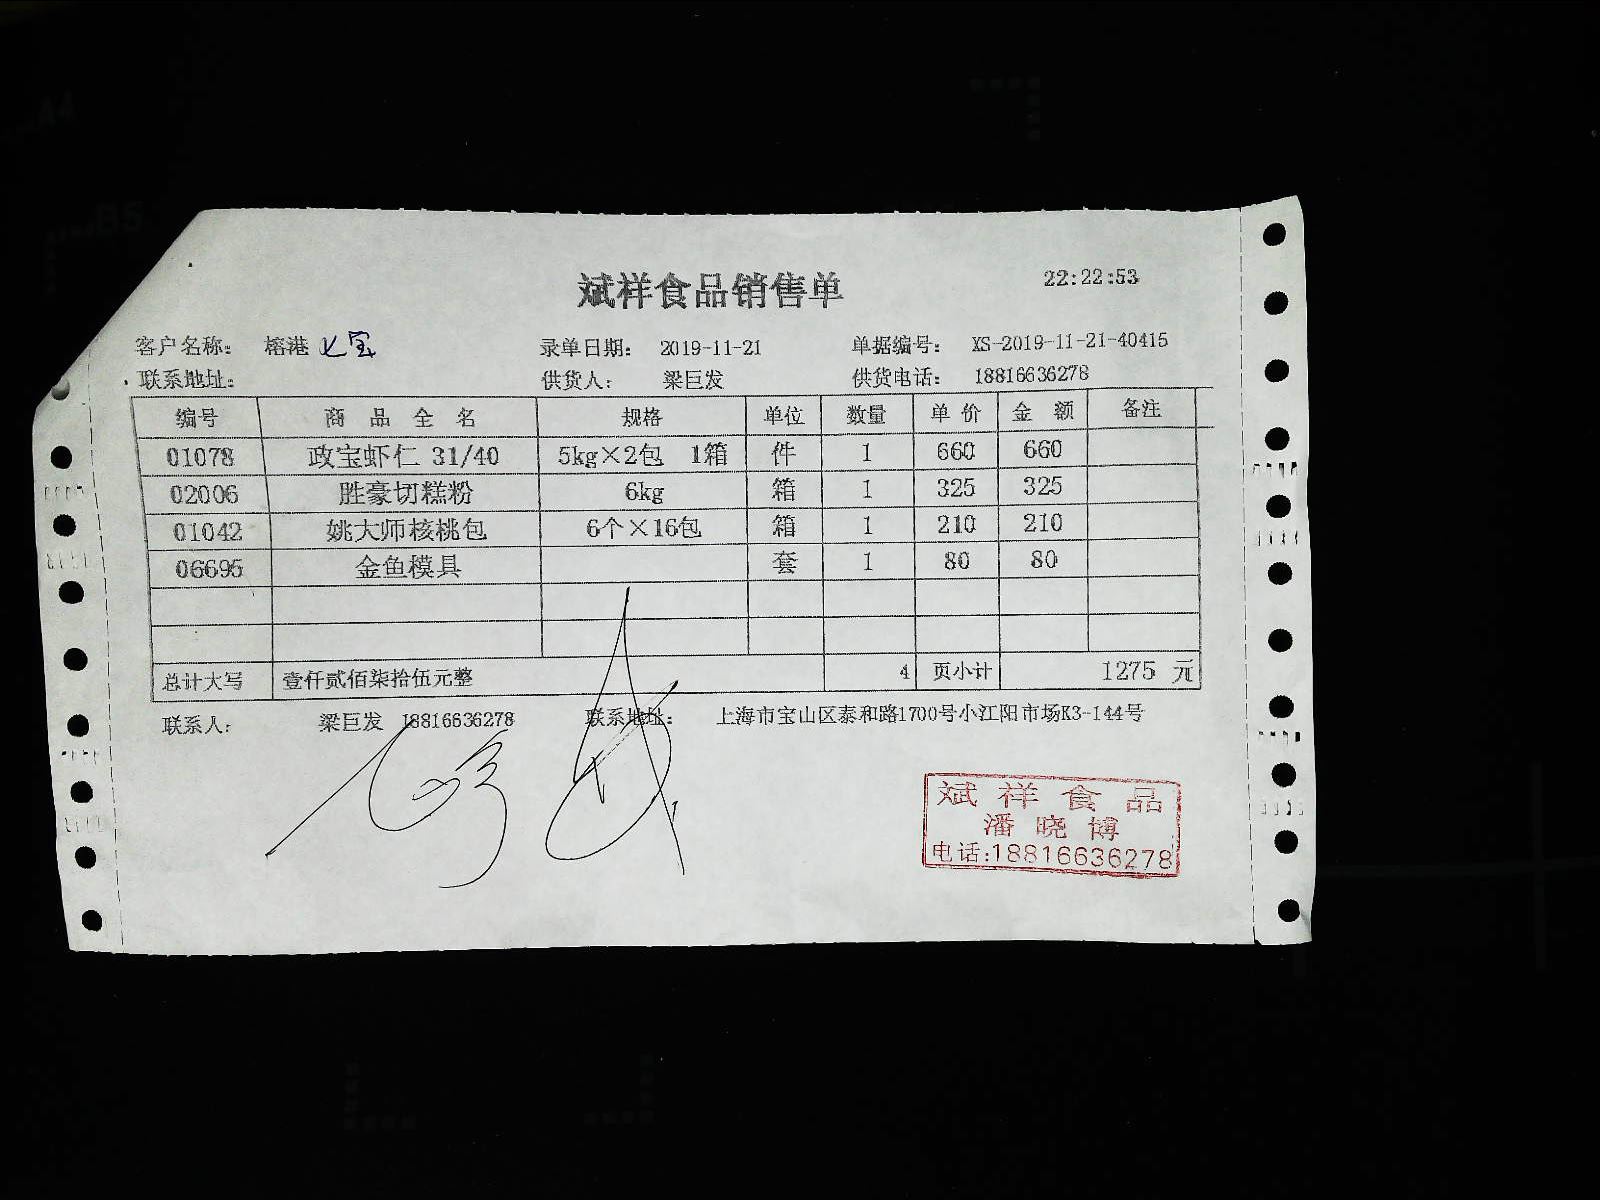 斌祥食品销售单 22:22:53
客户名称： 榕港 七宝 录单日期： 2019-11-21 单据编号： XS-2019-11-21-40415
联系地址： 供货人： 梁巨发 供货电话： 18816636278
编号 商品全名 规格 单位 数量 单价 金额 备注
01078 政宝虾仁 31/40 5kg×2包 1箱 件 1 660 660
02006 胜豪切糕粉 6kg 箱 1 325 325
01042 姚大师核桃包 6个×16包 箱 1 210 210
06695 金鱼模具 套 1 80 80
总计大写 壹仟贰佰柒拾伍元整 4 页小计 1275 元
联系人： 梁巨发 18816636278 联系地址： 上海市宝山区泰和路1700号小江阳市场K3-144号
斌祥食品
潘晓博
电话:18816636278